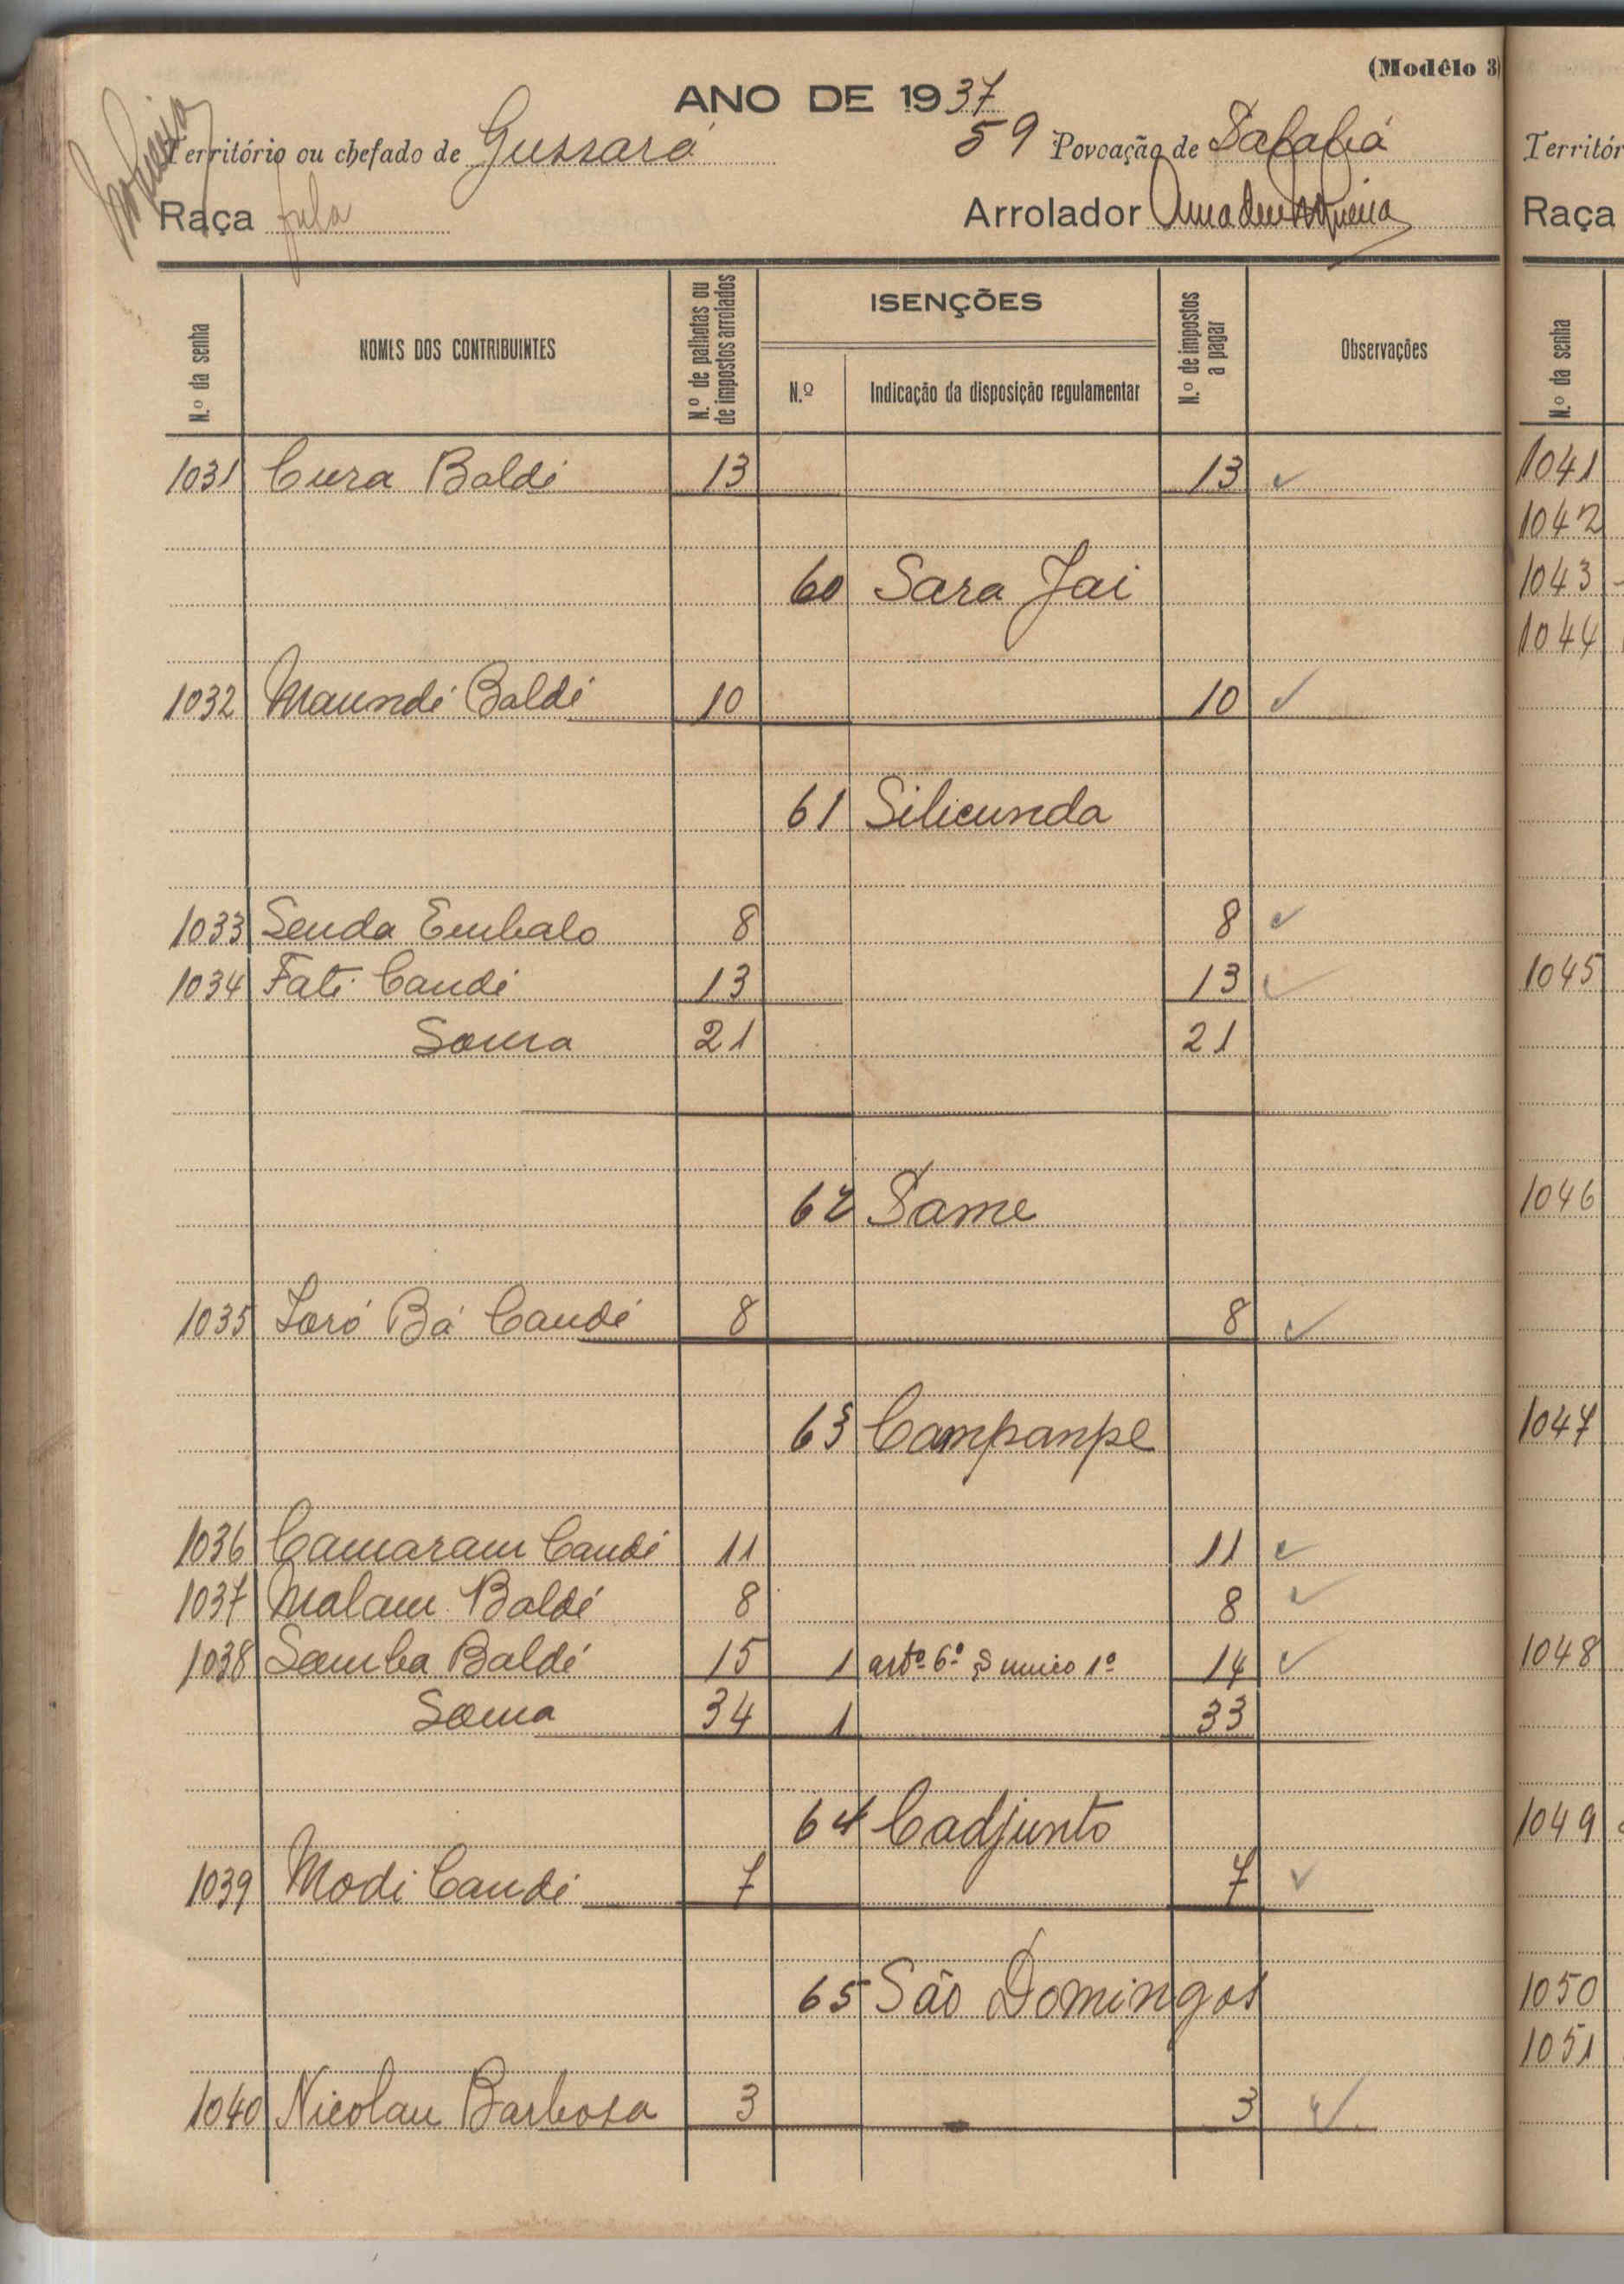 (Modêlo 3)
ANO DE 1937
Território ou chefado de Gussará 59 Povoação de
Raça fula Arrolador Amadeu
N.º da senha NOMES DOS CONTRIBUINTES N.º de palhotas ou de impostos arrolados ISENÇÕES N.º Indicação da disposição regulamentar N.º de impostos a pagar Observações
1031 Cura Baldé 13 13 ✓
60 Sara Jai
1032 Maundé Baldé 10 10 ✓
61 Silicunda
1033 Senda Embalo 8 8 ✓
1034 Fati Candé 13 13 ✓
Soma 21 21
62 Same
1035 Loró Bá Candé 8 8 ✓
63 Campanpe
1036 Camaram Candé 11 11 ✓
1037 Malam Baldé 8 8 ✓
1038 Samba Baldé 15 1 artº 6º § unico 1º 14 ✓
Soma 34 1 33
64 Cadjunto
1039 Modi Candé 7 7 ✓
65 São Domingos
1040 Nicolau Barbosa 3 3 ✓
Territór
Raça
N.º da senha
1041
1042
1043
1044
1045
1046
1047
1048
1049
1050
1051